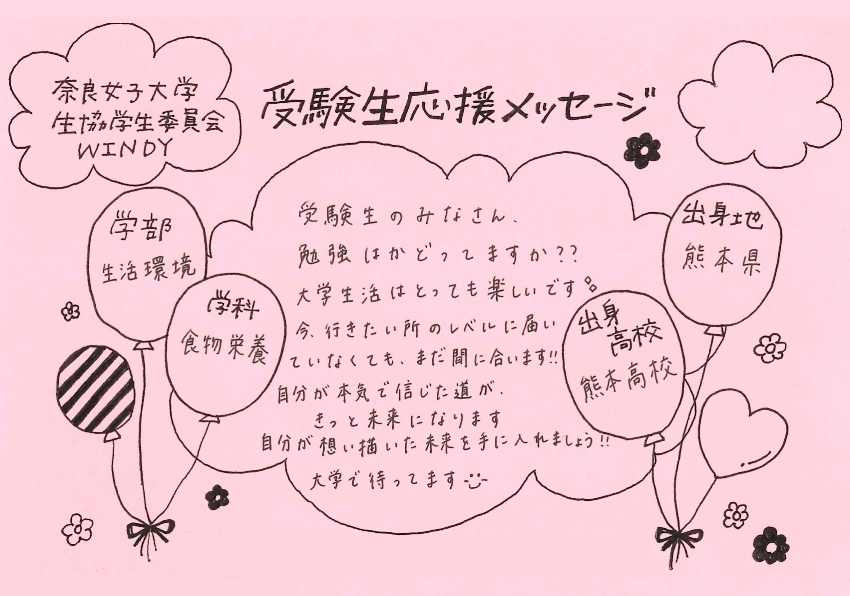 奈良女子大学
生協学生委員会
WINDY
受験生応援メッセージ
学部
生活環境
学科
食物栄養
受験生のみなさん、
勉強はかどってますか??
大学生活はとっても楽しいです
今、行きたい所のレベルに届い
ていなくても、まだ間に合います!!
自分が本気で信じた道が、
きっと未来になります
自分が想い描いた未来を手に入れましょう!!
大学で待ってます
出身地
熊本県
出身
高校
熊本高校